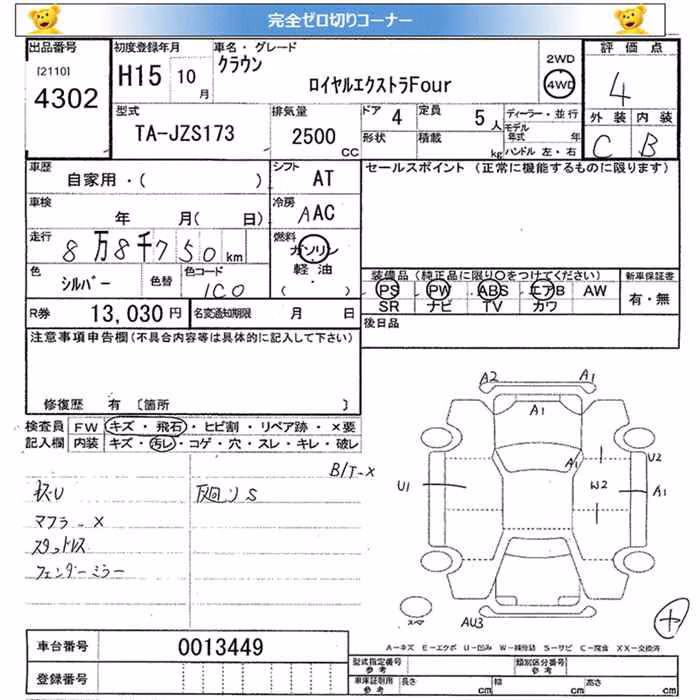 完全ゼロ切りコーナー
出品番号 初度登録年月 車名・グレード 評価点
[2110] 4302
H15 10月
クラウン
ロイヤルエクストラFour
2WD
4WD
4
外装 内装
C B
型式 排気量 ドア 4 定員 5人 ディーラー・並行
TA-JZS173 2500CC
形状 積載 kg モデル年式 年
ハンドル 左・右
車歴 シフト セールスポイント (正常に機能するものに限ります)
自家用・( ) AT
車検 冷房
年 月( 日) AAC
走行 燃料
8万8千750km ガソリン
軽油
( ・ )
色 色替 色コード
シルバー 1C0
装備品(純正品に限り○をつけてください) 新車保証書
PS PW ABS エアB AW 有・無
SR ナビ TV カワ
R券 13,030円 名変通知期限 月 日
後日品
注意事項申告欄(不具合内容等は具体的に記入して下さい)
修復歴 有 [箇所 ]
検査員 FW キズ・飛石・ヒビ割・リペア跡・×要
記入欄 内装 キズ・汚レ・コゲ・穴・スレ・キレ・破レ
B/T-X
廻りS
マフラーX
スタッドレス
フェンダーミラー
A2 A1
A1
A1 U2
U1 W2 A1
AU3
スペア
+
A-キズ E-エクボ U-凹み W-補修跡 S-サビ C-腐食 XX-交換済
車台番号 0013449
登録番号
型式指定番号 参考 類別区分番号 参考
車庫証明用 参考 長さ cm 幅 cm 高さ cm